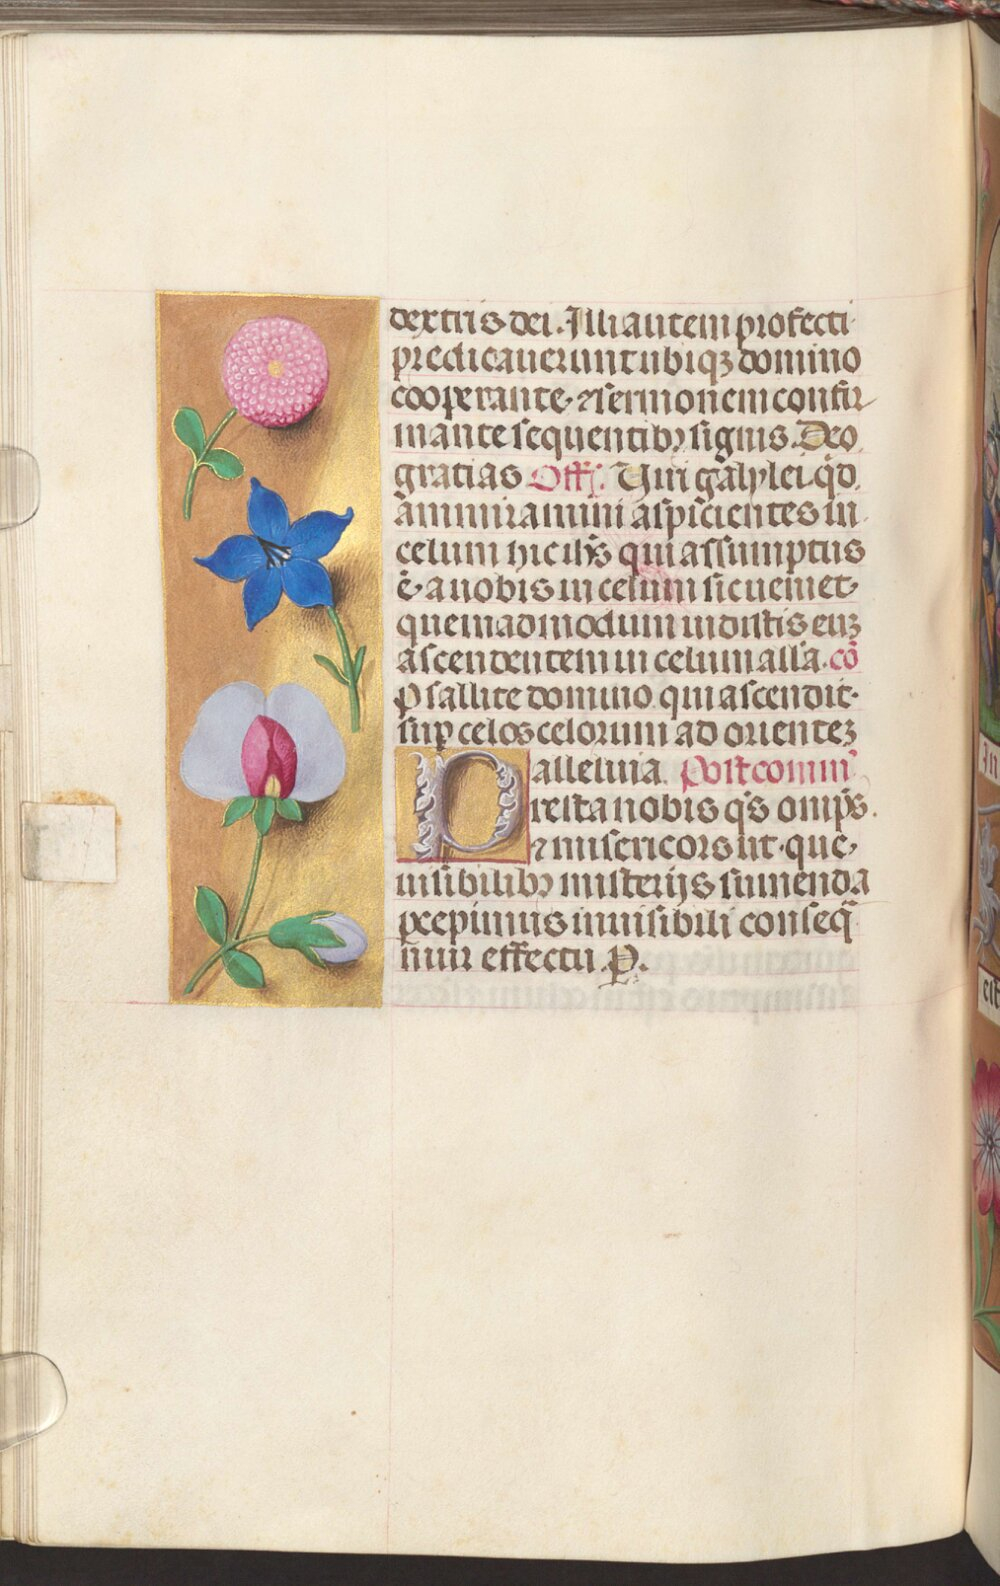 dextris dei. Illi autem profecti
predicauerunt ubiqꝫ domino
cooperante ⁊ sermonem confir
mante sequentibꝰ signis. Deo
gratias Offi. Uiri galylei qd̄
āmiramini aspicientes in
celum hic ih̄s qui assumptus
ē a uobis in celum sic ueniet
quemadmodum uidistis euꝫ
ascendentem in celum alla. cō
Psallite domino qui ascendit
sup celos celorum ad orienteꝫ
alleluia. Postcomun̄
Presta nobis qs̄ omp̄s
⁊ misericors ut que
uisibilibꝰ misterijs sumenda
ꝑcepimus inuisibili conseq̄
mur effectu. P.